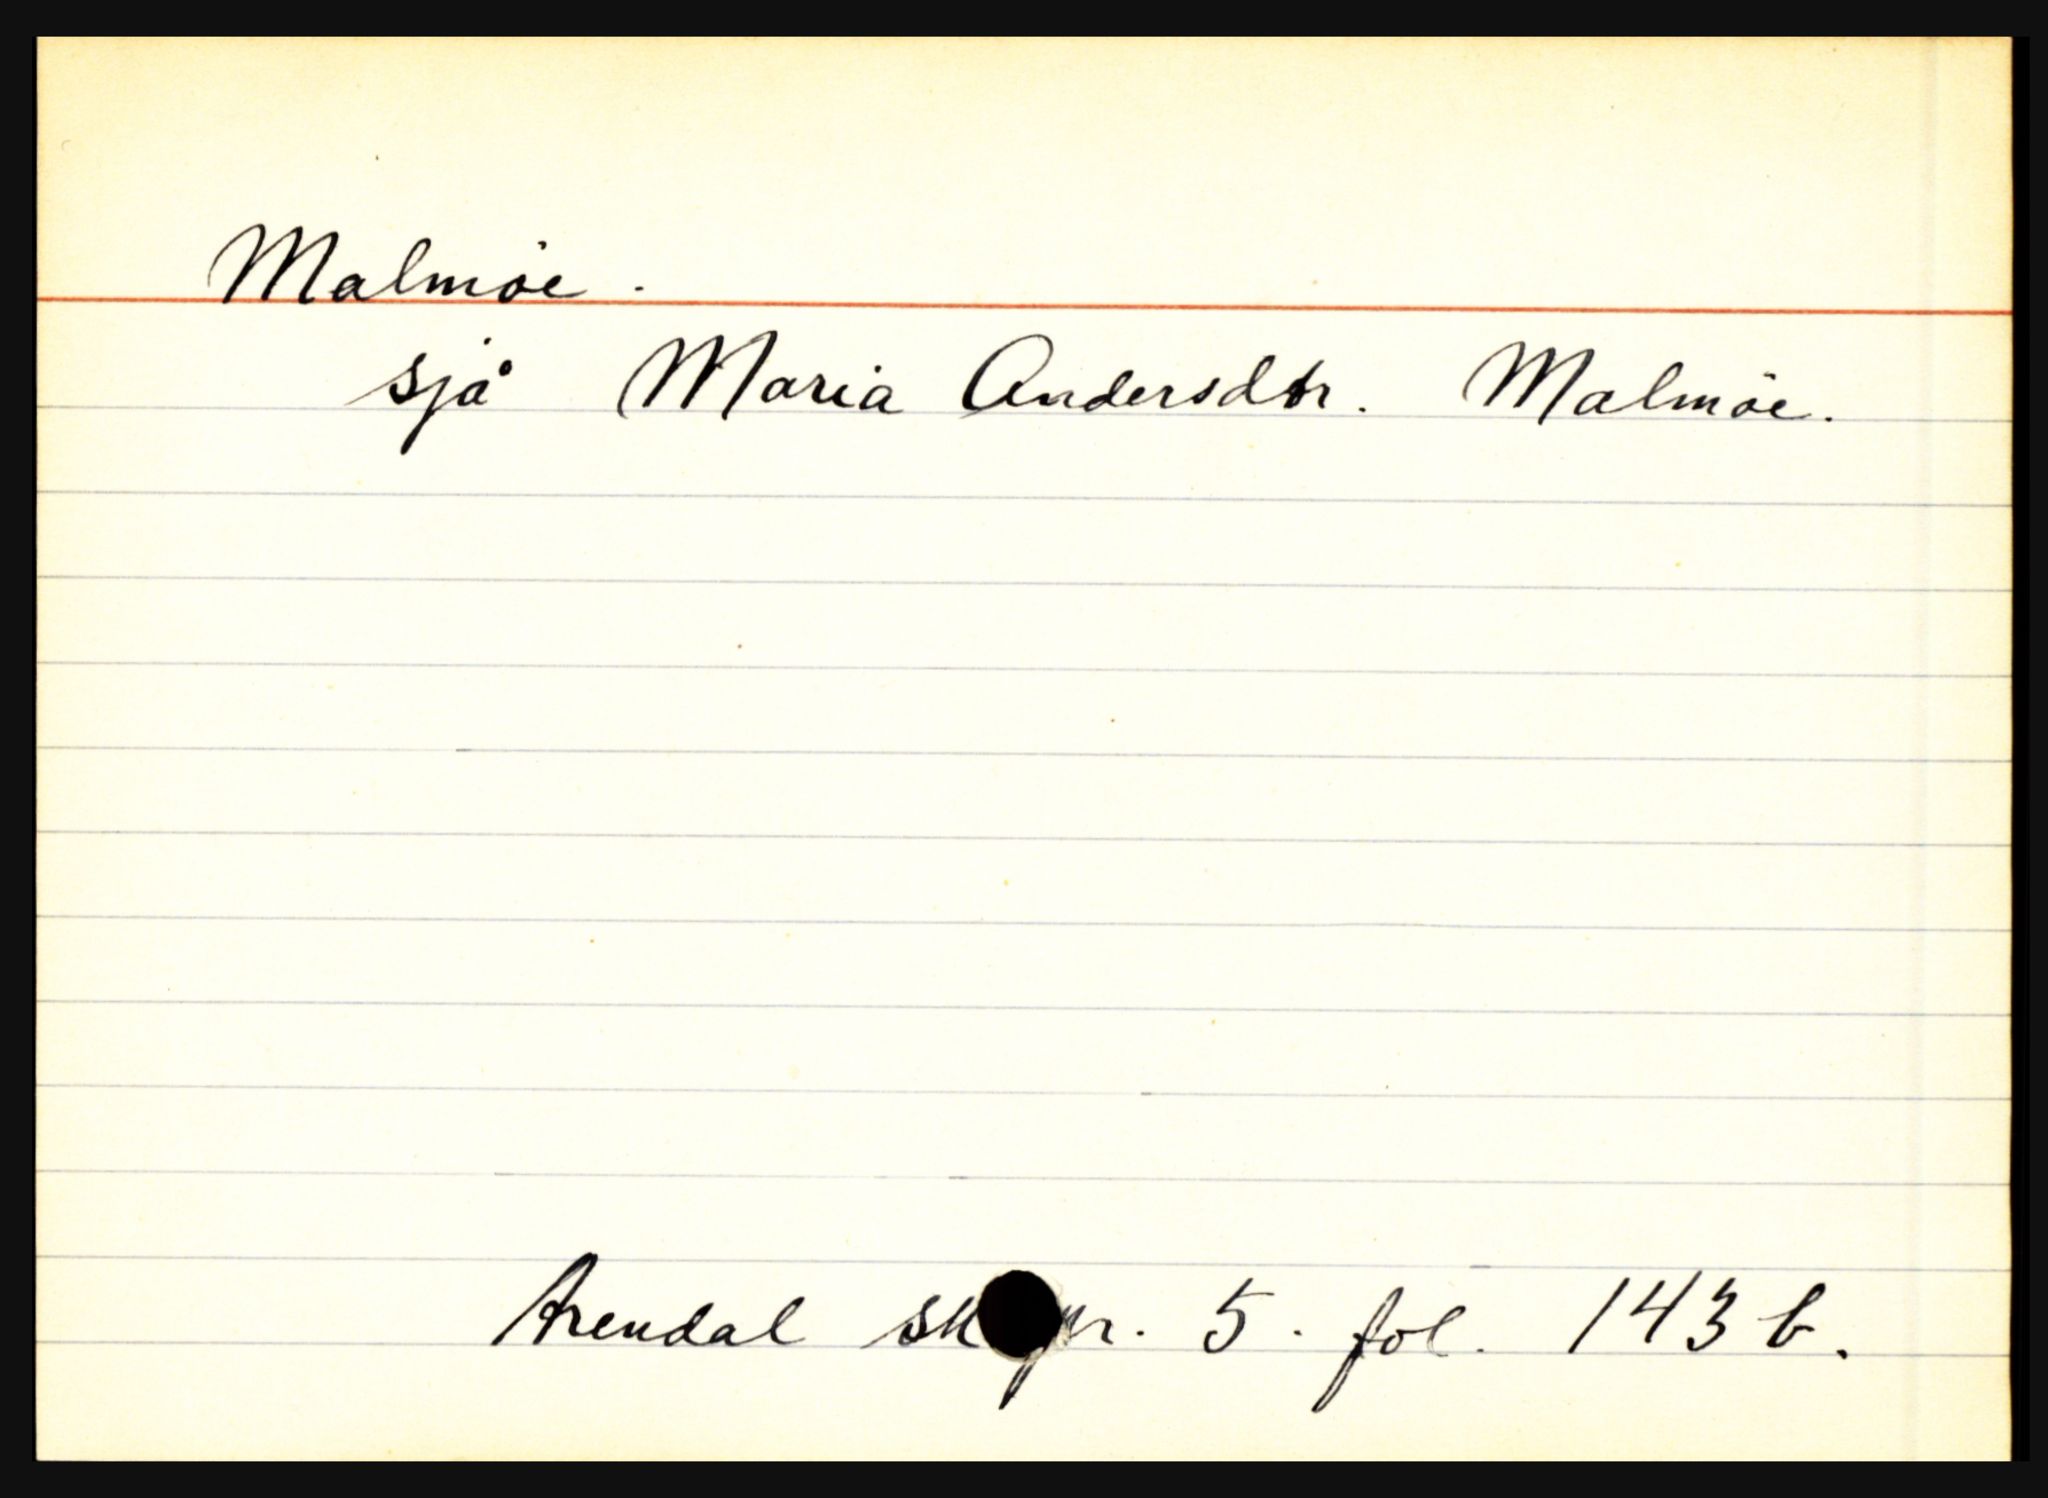 Malmöe.
sjå Maria Andersdtr. Malmöe.
Arendal nr. 5. fol. 143 b.